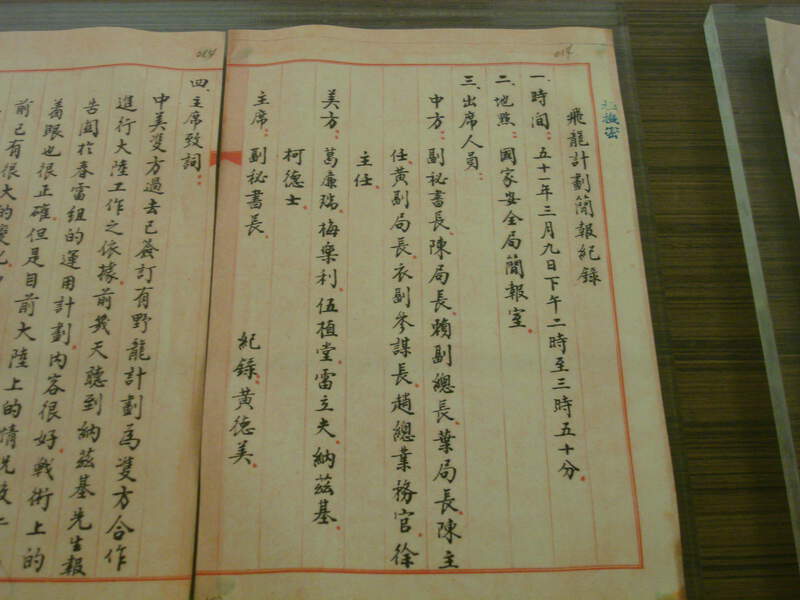 極機密
014
飛龍計劃簡報紀錄
一、時間：五十一年三月九日下午二時至三時五十分。
二、地點：國家安全局簡報室。
三、出席人員：
中方：副秘書長、陳局長、賴副總長、葉局長、陳主
任、黃副局長、衣副參謀長、趙總業務官、徐
主任
美方：葛廉瑞、梅樂利、伍植堂、雷立夫、納茲基、
柯德士、
主席：副秘書長、
紀錄：黃德美。
四、主席致詞：
中美雙方過去已簽訂有野龍計劃為雙方合作
進行大陸工作之依據。前幾天聽到納茲基先生報
告關於春雷組的運用計劃，內容很好，戰術上的
著眼也很正確，但是目前大陸上的情況較
前已有很大的變化